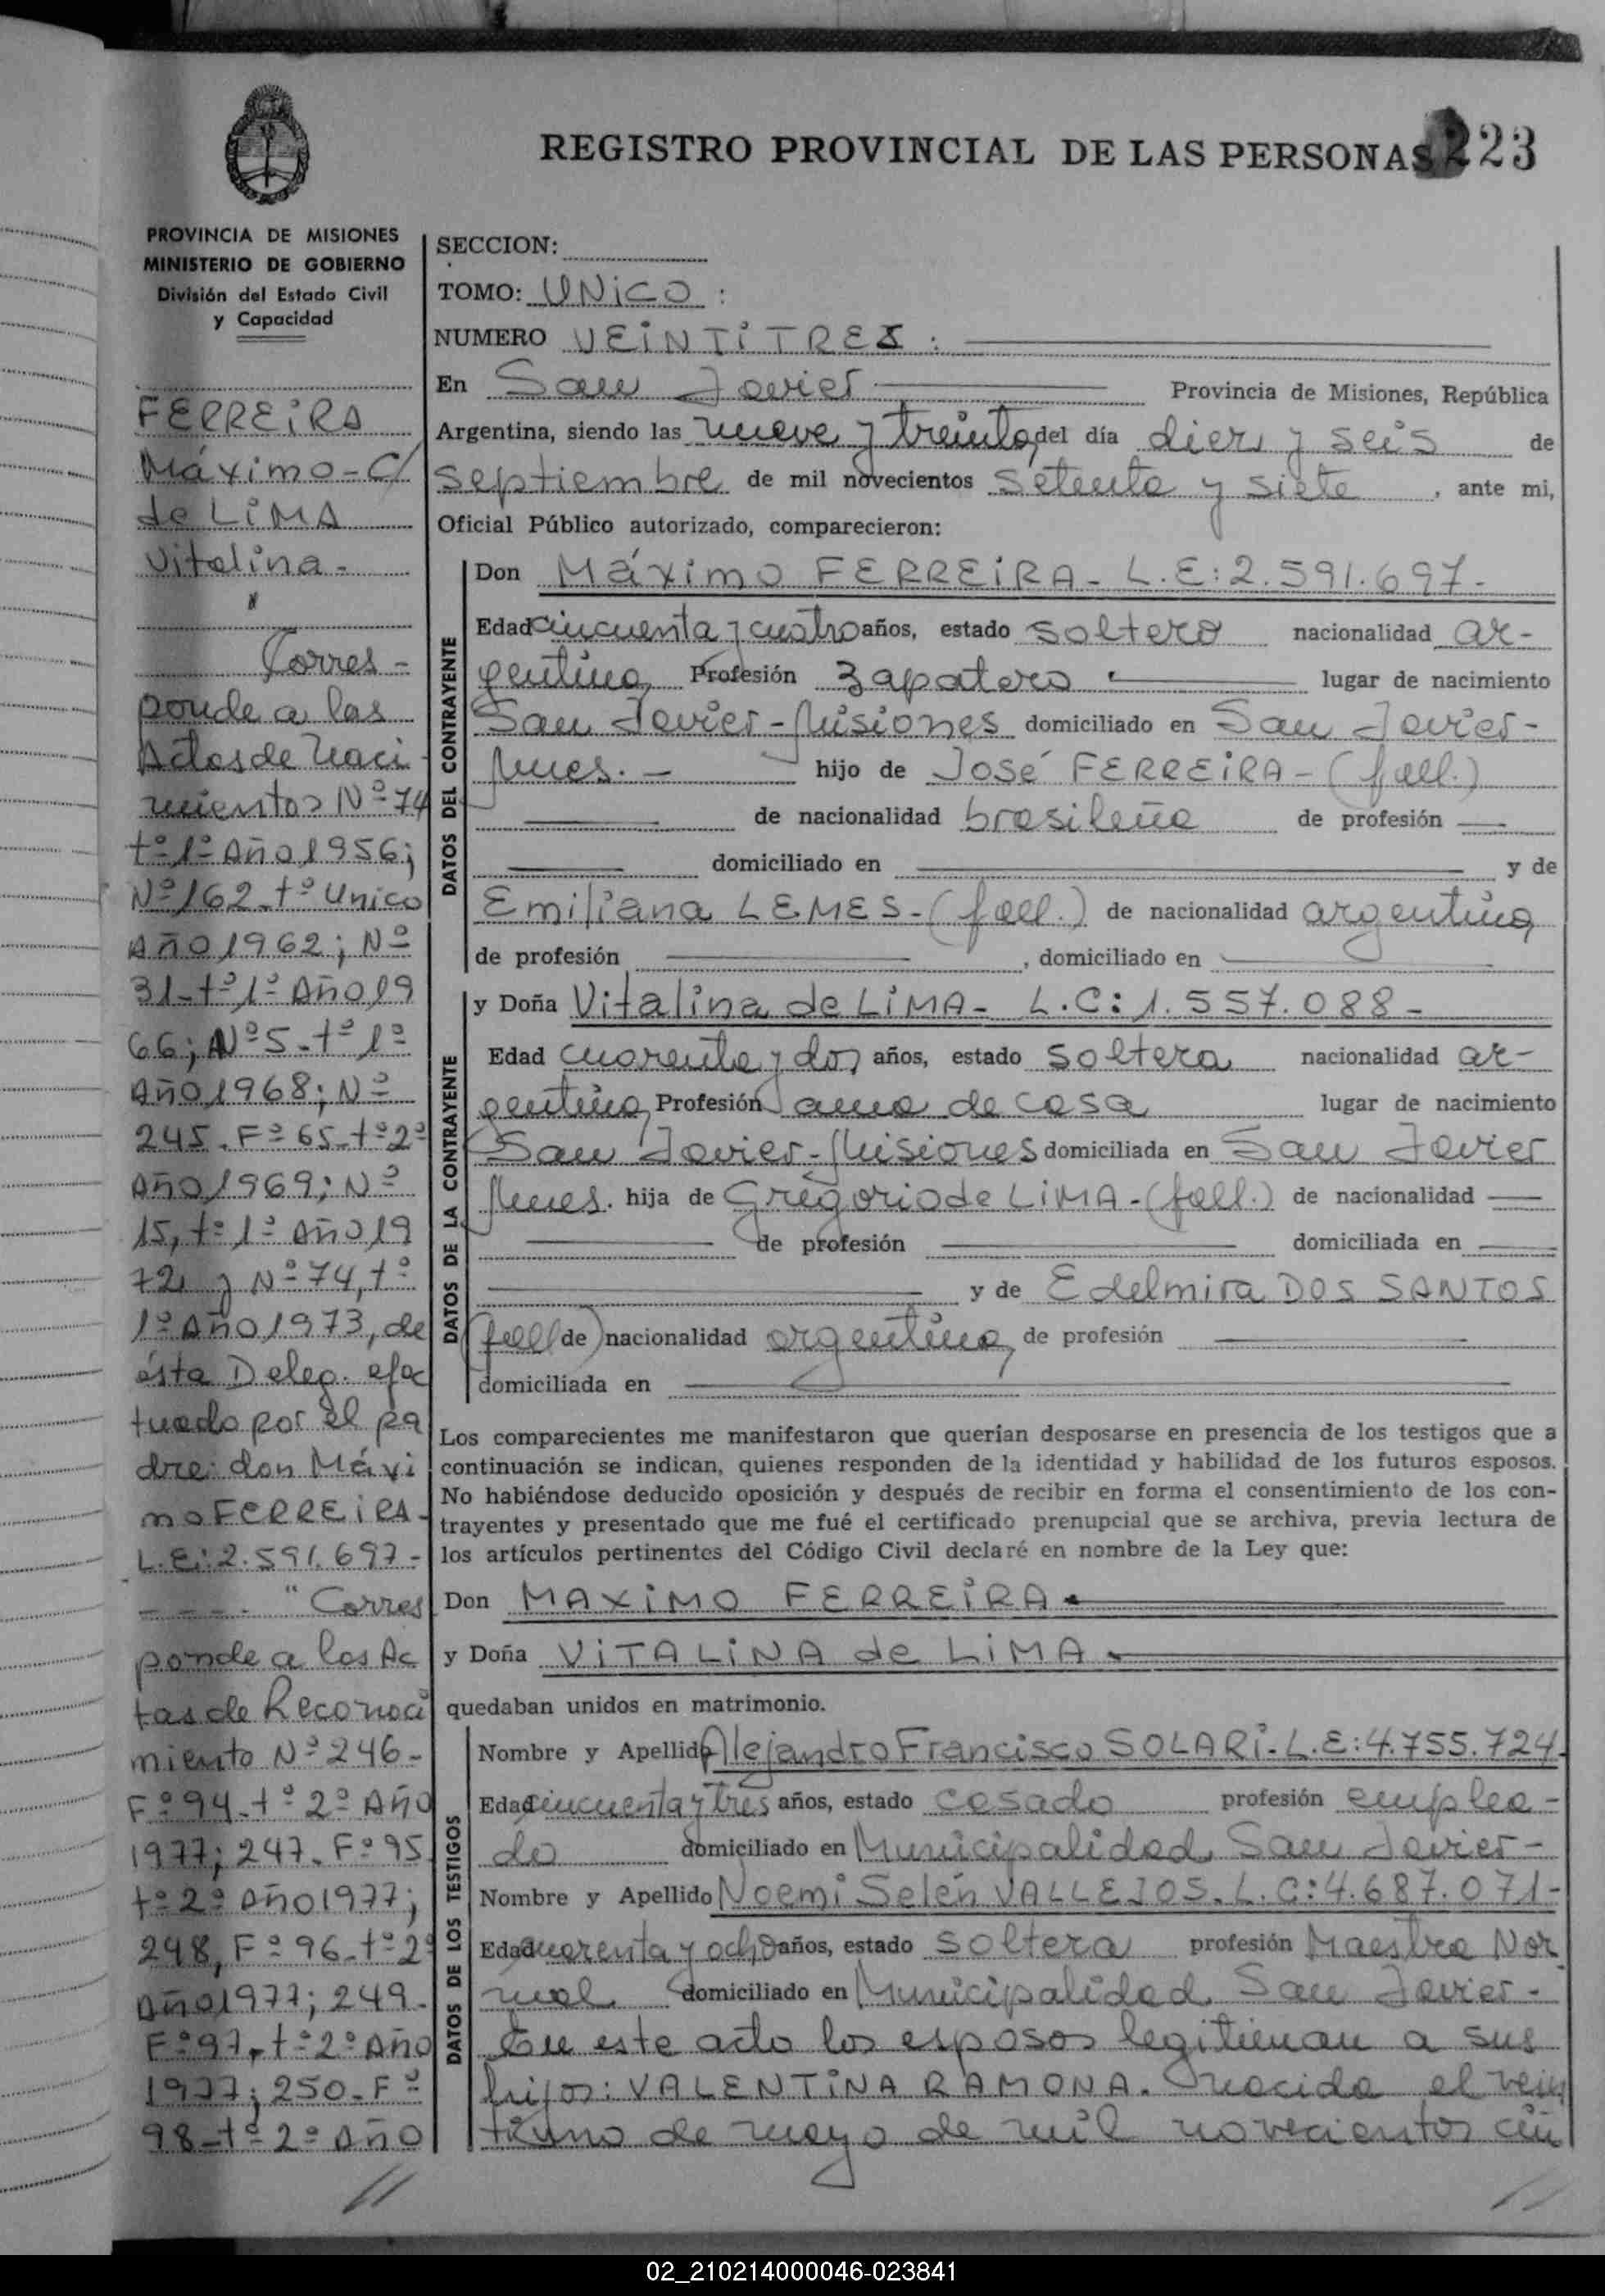 REGISTRO PROVINCIAL DE LAS PERSONAS
223
PROVINCIA DE MISIONES
MINISTERIO DE GOBIERNO
División del Estado Civil
y Capacidad
FERREIRA
Máximo - C/
de LIMA
Vitalina -
"
Corres-
ponde a las
Actas de Naci-
mientos Nº 74
tº 1º Año 1956;
Nº 162 - tº Unico
Año 1962; Nº
31 - tº 1º Año 19
66; Nº 5 - tº 1º
Año 1968; Nº
245. Fº 65 - tº 2º
Año 1969; Nº
15, tº 1º Año 19
72 y Nº 74, tº
1º Año 1973, de
ésta Deleg. efec
tuado por el pa
dre: don Máxi
mo FERREIRA -
L.E: 2.591.697 -
- - - - " Corres
ponde a las Ac
tas de Reconoci
miento Nº 246 -
Fº 94 - tº 2º Año
1977; 247 - Fº 95
tº 2º Año 1977;
248, Fº 96 - tº 2º
Año 1977; 249 -
Fº 97, tº 2º Año
1977; 250 - Fº
98 - tº 2º Año
//
SECCION:
TOMO: UNICO :
NUMERO VEINTITRES :
En San Javier Provincia de Misiones, República
Argentina, siendo las nueve y treinta, del día diez y seis de
septiembre de mil novecientos setenta y siete , ante mi,
Oficial Público autorizado, comparecieron:
DATOS DEL CONTRAYENTE
Don Máximo FERREIRA - L.E: 2.591.697 -
Edad cincuenta y cuatro años, estado soltero nacionalidad ar-
gentina, Profesión zapatero lugar de nacimiento
San Javier - Misiones domiciliado en San Javier -
Mnes. - hijo de José FERREIRA - (fall.)
de nacionalidad brasileña de profesión
domiciliado en y de
Emiliana LEMES - (fall.) de nacionalidad argentina,
de profesión , domiciliado en
DATOS DE LA CONTRAYENTE
y Doña Vitalina de LIMA - L.C: 1.557.088 -
Edad cuarenta y dos años, estado soltera nacionalidad ar-
gentina, Profesión ama de casa lugar de nacimiento
San Javier - Misiones domiciliada en San Javier
Mnes. hija de Gregorio de LIMA - (fall.) de nacionalidad
de profesión domiciliada en
y de Edelmira DOS SANTOS
(fall. de) nacionalidad argentina, de profesión
domiciliada en
Los comparecientes me manifestaron que querían desposarse en presencia de los testigos que a
continuación se indican, quienes responden de la identidad y habilidad de los futuros esposos.
No habiéndose deducido oposición y después de recibir en forma el consentimiento de los con-
trayentes y presentado que me fué el certificado prenupcial que se archiva, previa lectura de
los artículos pertinentes del Código Civil declaré en nombre de la Ley que:
Don MAXIMO FERREIRA
y Doña VITALINA de LIMA
quedaban unidos en matrimonio.
DATOS DE LOS TESTIGOS
Nombre y Apellido Alejandro Francisco SOLARI - L.E: 4.755.724
Edad cincuenta y tres años, estado casado profesión emplea-
do domiciliado en Municipalidad San Javier -
Nombre y Apellido Noemi Selén VALLEJOS - L.C: 4.687.071 -
Edad cuarenta y ocho años, estado soltera profesión Maestra Nor
mal domiciliado en Municipalidad San Javier -
En este acto los esposos legitiman a sus
hijos: VALENTINA RAMONA. nacida el vein
tiuno de mayo de mil novecientos cin
//
02_210214000046-023841